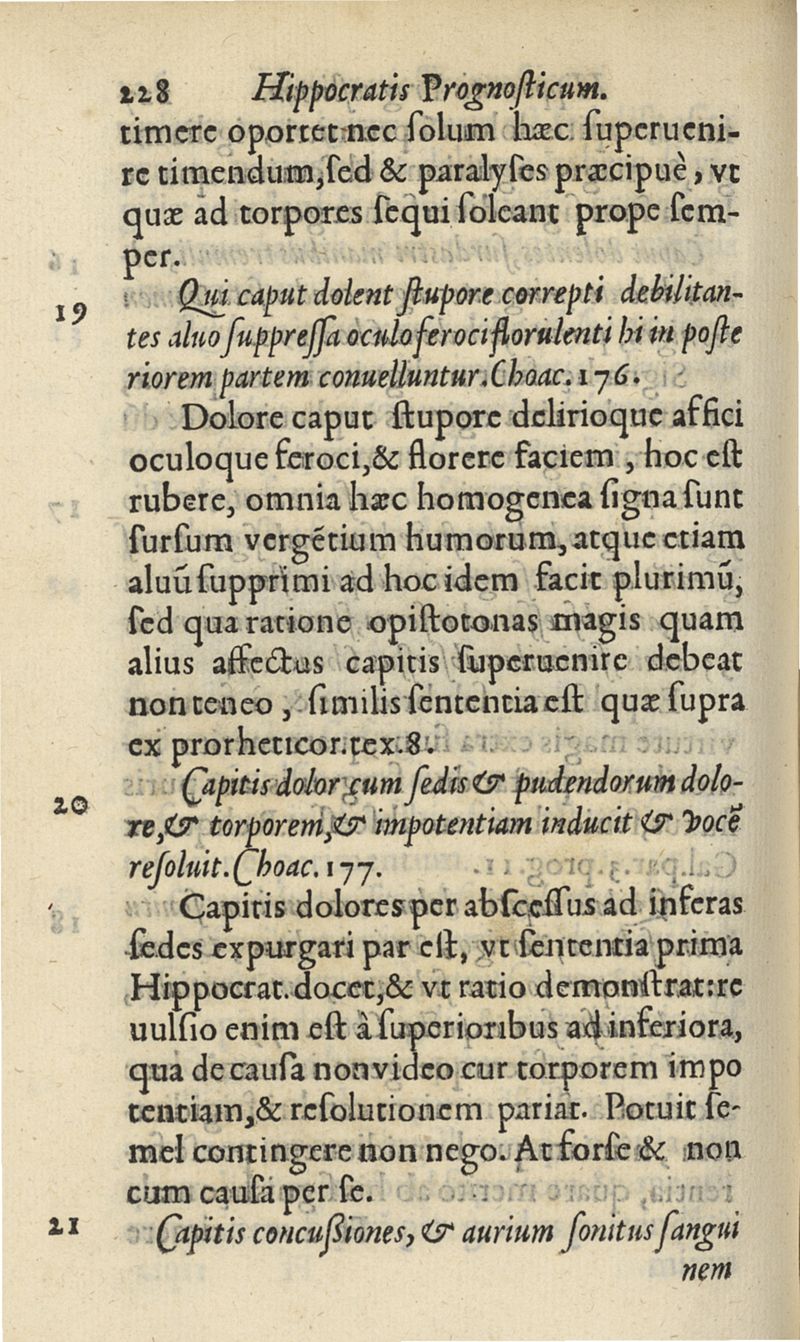 228 Hippocratis Prognosticum.
timere oportet nec solum hæc superueni-
re timendum, sed & paralyses præcipuè, vt
quæ ad torpores sequi soleant prope sem-
per.
19 Qui caput dolent stupore correpti debilitan-
tes aluo suppressa oculo feroci florulenti hi in poste
riorem partem conuelluntur. Choac. 176.
Dolore caput stupore delirioque affici
oculoque feroci, & florere faciem, hoc est
rubere, omnia hæc homogenea signa sunt
sursum vergẽtium humorum, atque etiam
aluũ supprimi ad hoc idem facit plurimũ,
sed qua ratione opistotonas magis quam
alius affectus capitis superuenire debeat
non teneo, similis sententia est quæ supra
ex prorheticor. tex. 8.
20 Capitis dolor cum sedis & pudendorum dolo-
re, & torporem, & impotentiam inducit & vocẽ
resoluit. Choac. 177.
Capitis dolores per abscessus ad inferas
sedes expurgari par est, vt sententia prima
Hippocrat. docet, & vt ratio demonstrat: re
uulsio enim est à superioribus ad inferiora,
qua de causa non video cur torporem impo
tentiam, & resolutionem pariat. Potuit se-
mel contingere non nego. At forse & non
cum causa per se.
21 Capitis concussiones, & aurium sonitus sangui
nem